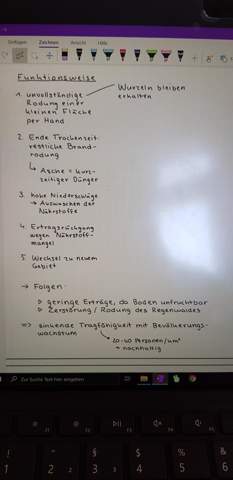 Einfügen Zeichnen Ansicht Hilfe
Funktionsweise
1. unvollständige Rodung einer kleinen Fläche per Hand
Wurzeln bleiben erhalten
2. Ende Trockenzeit:
restliche Brand-
rodung
↳ Asche = kurz-
zeitiger Dünger
3. hohe Niederschläge
→ Auswaschen der
Nährstoffe
4. Ertragsrückgang
wegen Nährstoff-
mangel
5. Wechsel zu neuem
Gebiet
→ Folgen:
▷ geringe Erträge, da Boden unfruchtbar
▷ Zerstörung / Rodung des Regenwaldes
=> sinkende Tragfähigkeit mit Bevölkerungs-
wachstum
20-40 Personen/km²
= nachhaltig
Zur Suche Text hier eingeben
F1 F2 F3 F4 F5 F6
1 2 3 4 5 6